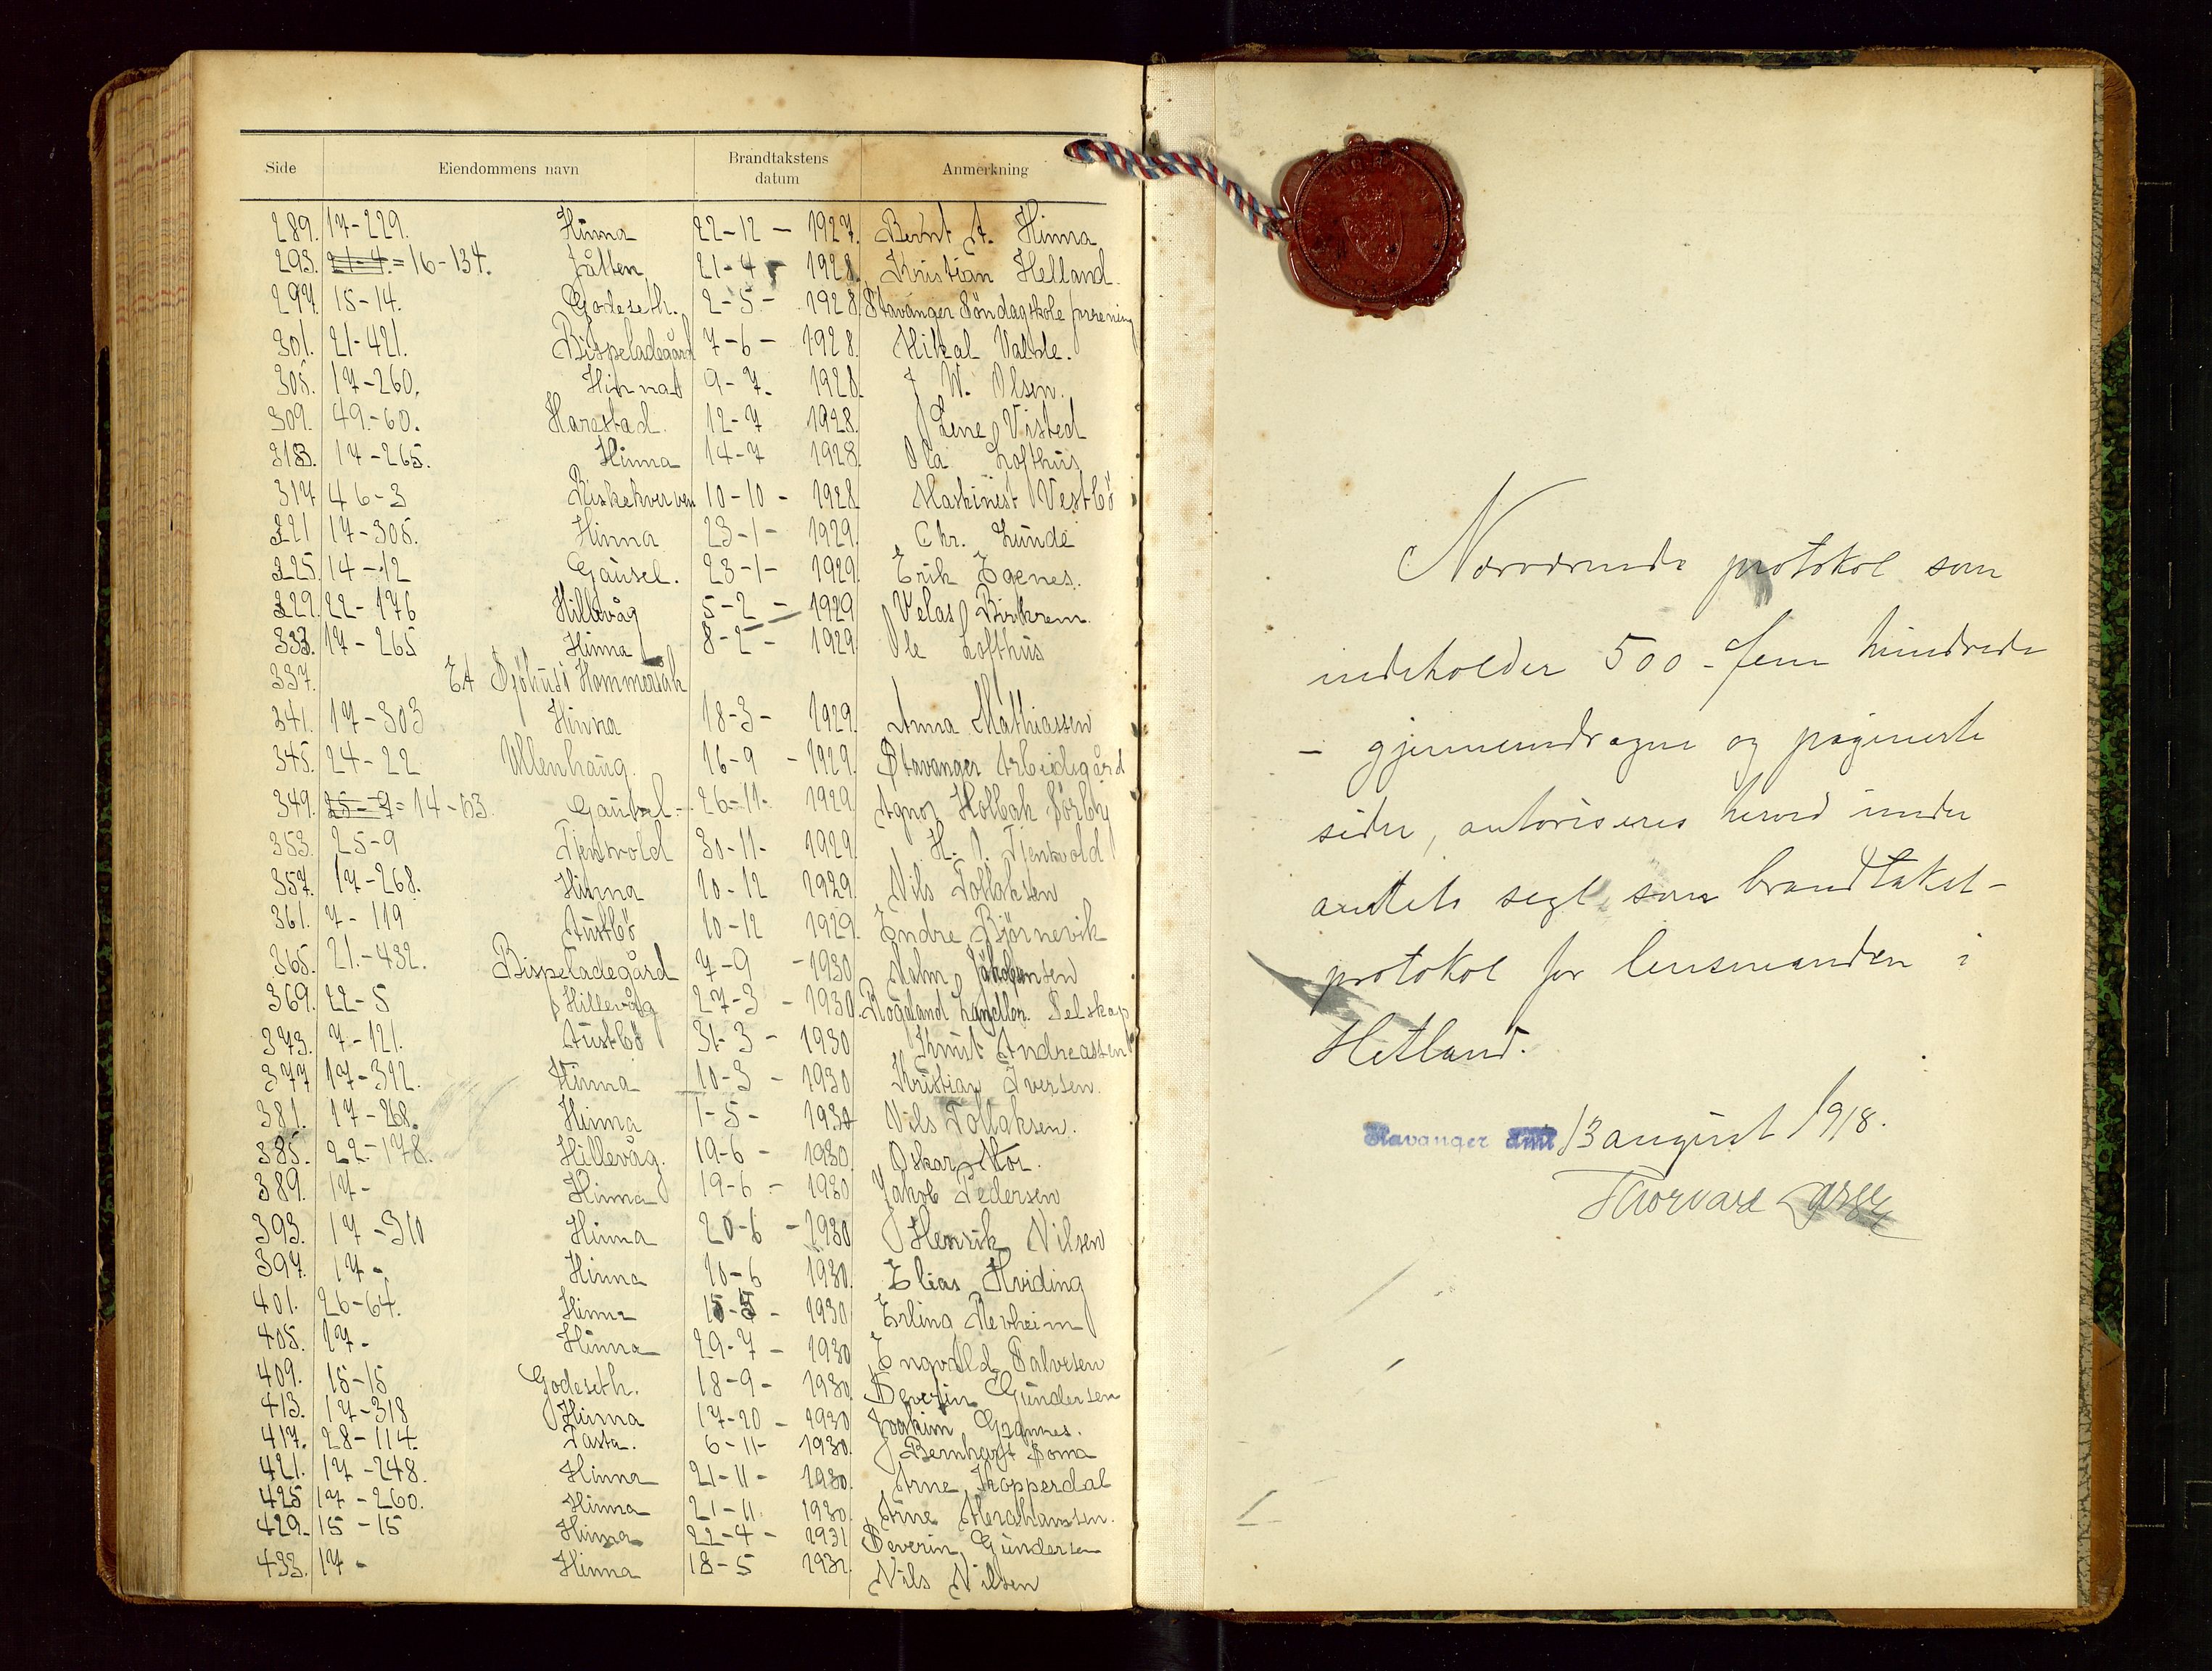 Side Eiendommens navn Brandtakstens datum Anmerkning
289. 17-229. Hinna 22-12 - 1927. Bernt A. Hinna
293. 21-4. = 16-134. Jåtten 21-4 - 1928. Kristian Helland.
297. 15-14. Godeseth. 2-5- 1928. Stavanger Söndagskole forening
301. 21-421. Bispeladegård 7-6- 1928. Mikal Valble.
305. 17-260. Hinna 9-7. 1928. J W. Olsen.
309. 49-60. Harestad. 12-7 1928. Lene Visted
313. 17-265. Hinna 14-7 1928. Ola Lofthus
317 46-3 Riskekverven 10-10- 1928 Maskinist Vestbö
321 17-305. Hinna 23-1- 1929. Chr. Lunde
325. 14-12 Gausel. 23-1- 1929. Erik Egenes.
329. 22-176 Hillevåg 5-2- 1929 Velas Birkrem.
333. 17-265 Hinna 8-2- 1929. Ole Lofthus
337. Et Sjöhus i Hommersåk
341. 17-303 Hinna 18-3- 1929. Anna Mathiassen
345. 24-22 Ullenhaug. 16-9 - 1929. Stavanger Arbeidsgård
349. 25-7 = 14-53. Gausel- 26-11- 1929 Agnor Holbak Sörby
353. 25-9 Tjensvold 30-11- 1929. H. O. Tjensvold
357. 17-268. Hinna 10-12 1929. Nils Tollaksen
361. 7-119 Austbö 10-12 1929. Endre Bjørnevik
365. 21.-432. Bispeladegård 7-9 -1930 Malm Jakobsen
369. 22-5 Hillevåg 27-3 - 1930. Rogaland Landbr. Selskap
373. 7-121. Austbö 31-3- 1930 Knut Andreassen
377 17-312. Hinna 10-3 - 1930 Kristian Iversen.
381. 17-268. Hinna 1-5- 1930 Nils Tollaksen.
385. 22-178. Hillevåg. 19-6- 1930. Oskar Mor.
389. 17- Hinna 19-6- 1930 Jakob Pedersen
393. 17-310 Hinna 20-6 -1930 Henrik Nilsen
397. 17- Hinna 10-6 1930. Elias Hviding
401. 26-64. Hinna 15-5- 1930 Erling Revheim
405. 17- Hinna 29-7- 1930 Engvald Salvesen
409. 15-15 Godeseth. 18-9- 1930. Severin Gundersen
413. 17-318 Hinna 17-10- 1930 Joakim Grannes.
417. 28-114. Tasta. 6-11- 1930. Bernhart Soma
421. 17-248. Hinna 21-11- 1930. Arne Kopperdal
425 17-260. Hinna 21-11. 1930. Arne Abrahamsen.
429. 15-15 Hinna 22-4- 1931 Severin Gundersen
433. 17- Hinna 18-5 1931. Nils Nilsen
Nærværende protokol som
indeholder 500 - fem hundrede
- gjennemdragne og paginerte
sider, autoriseres herved under
amtets segl som brandtakst-
protokol for lensmanden i
Hetland.
Stavanger amt 13 august 1918.
Thorvard